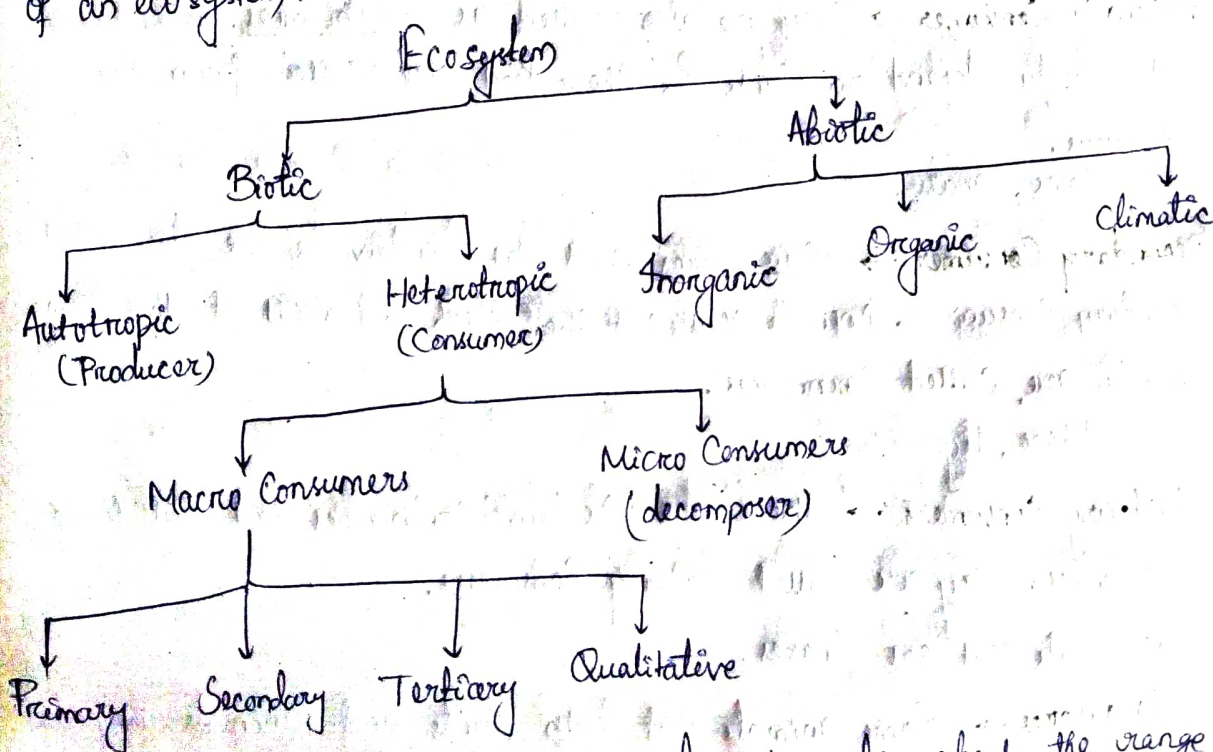 of an ecosystem
Ecosystem
Biotic
Abiotic
Autotropic
(Producer)
Heterotropic
(Consumer)
Inorganic
Organic
Climatic
Macro Consumers
Micro Consumers
(decomposer)
Primary
Secondary
Tertiary
Qualitative
the range